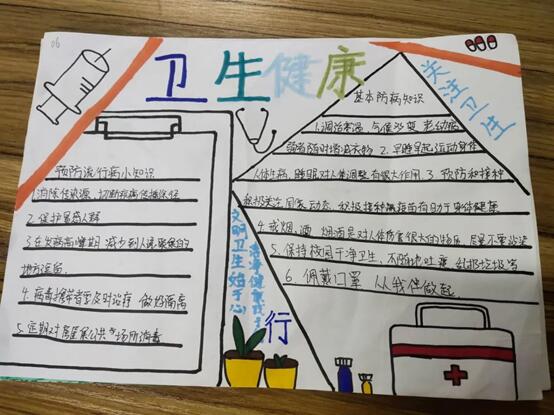 06
卫生健康
关注卫生
预防流行病小知识
1.消除传染源、切断疾病传播途径
2.保护易感人群
3.在发病高峰期 减少到人流聚集的
地方逗留
4.病毒携带者要及时治疗 做好隔离
5.定期对居室公共场所消毒
基本防病知识
1.调治寒温,气候多变 老幼病
弱者随时增减衣物 2.早睡早起,运动身体
人体生病,睡眠对人体调整有很大作用.3.预防和接种
积极关注国家动态,积极接种疫苗有助于身体健康
4.戒烟、酒 烟酒是对人体伤害很大的物质,尽量不要沾染
5.保持校园干净卫生,不随地吐痰 乱扔垃圾等
6.佩戴口罩 从我做起
文明卫生始于心
健康
行